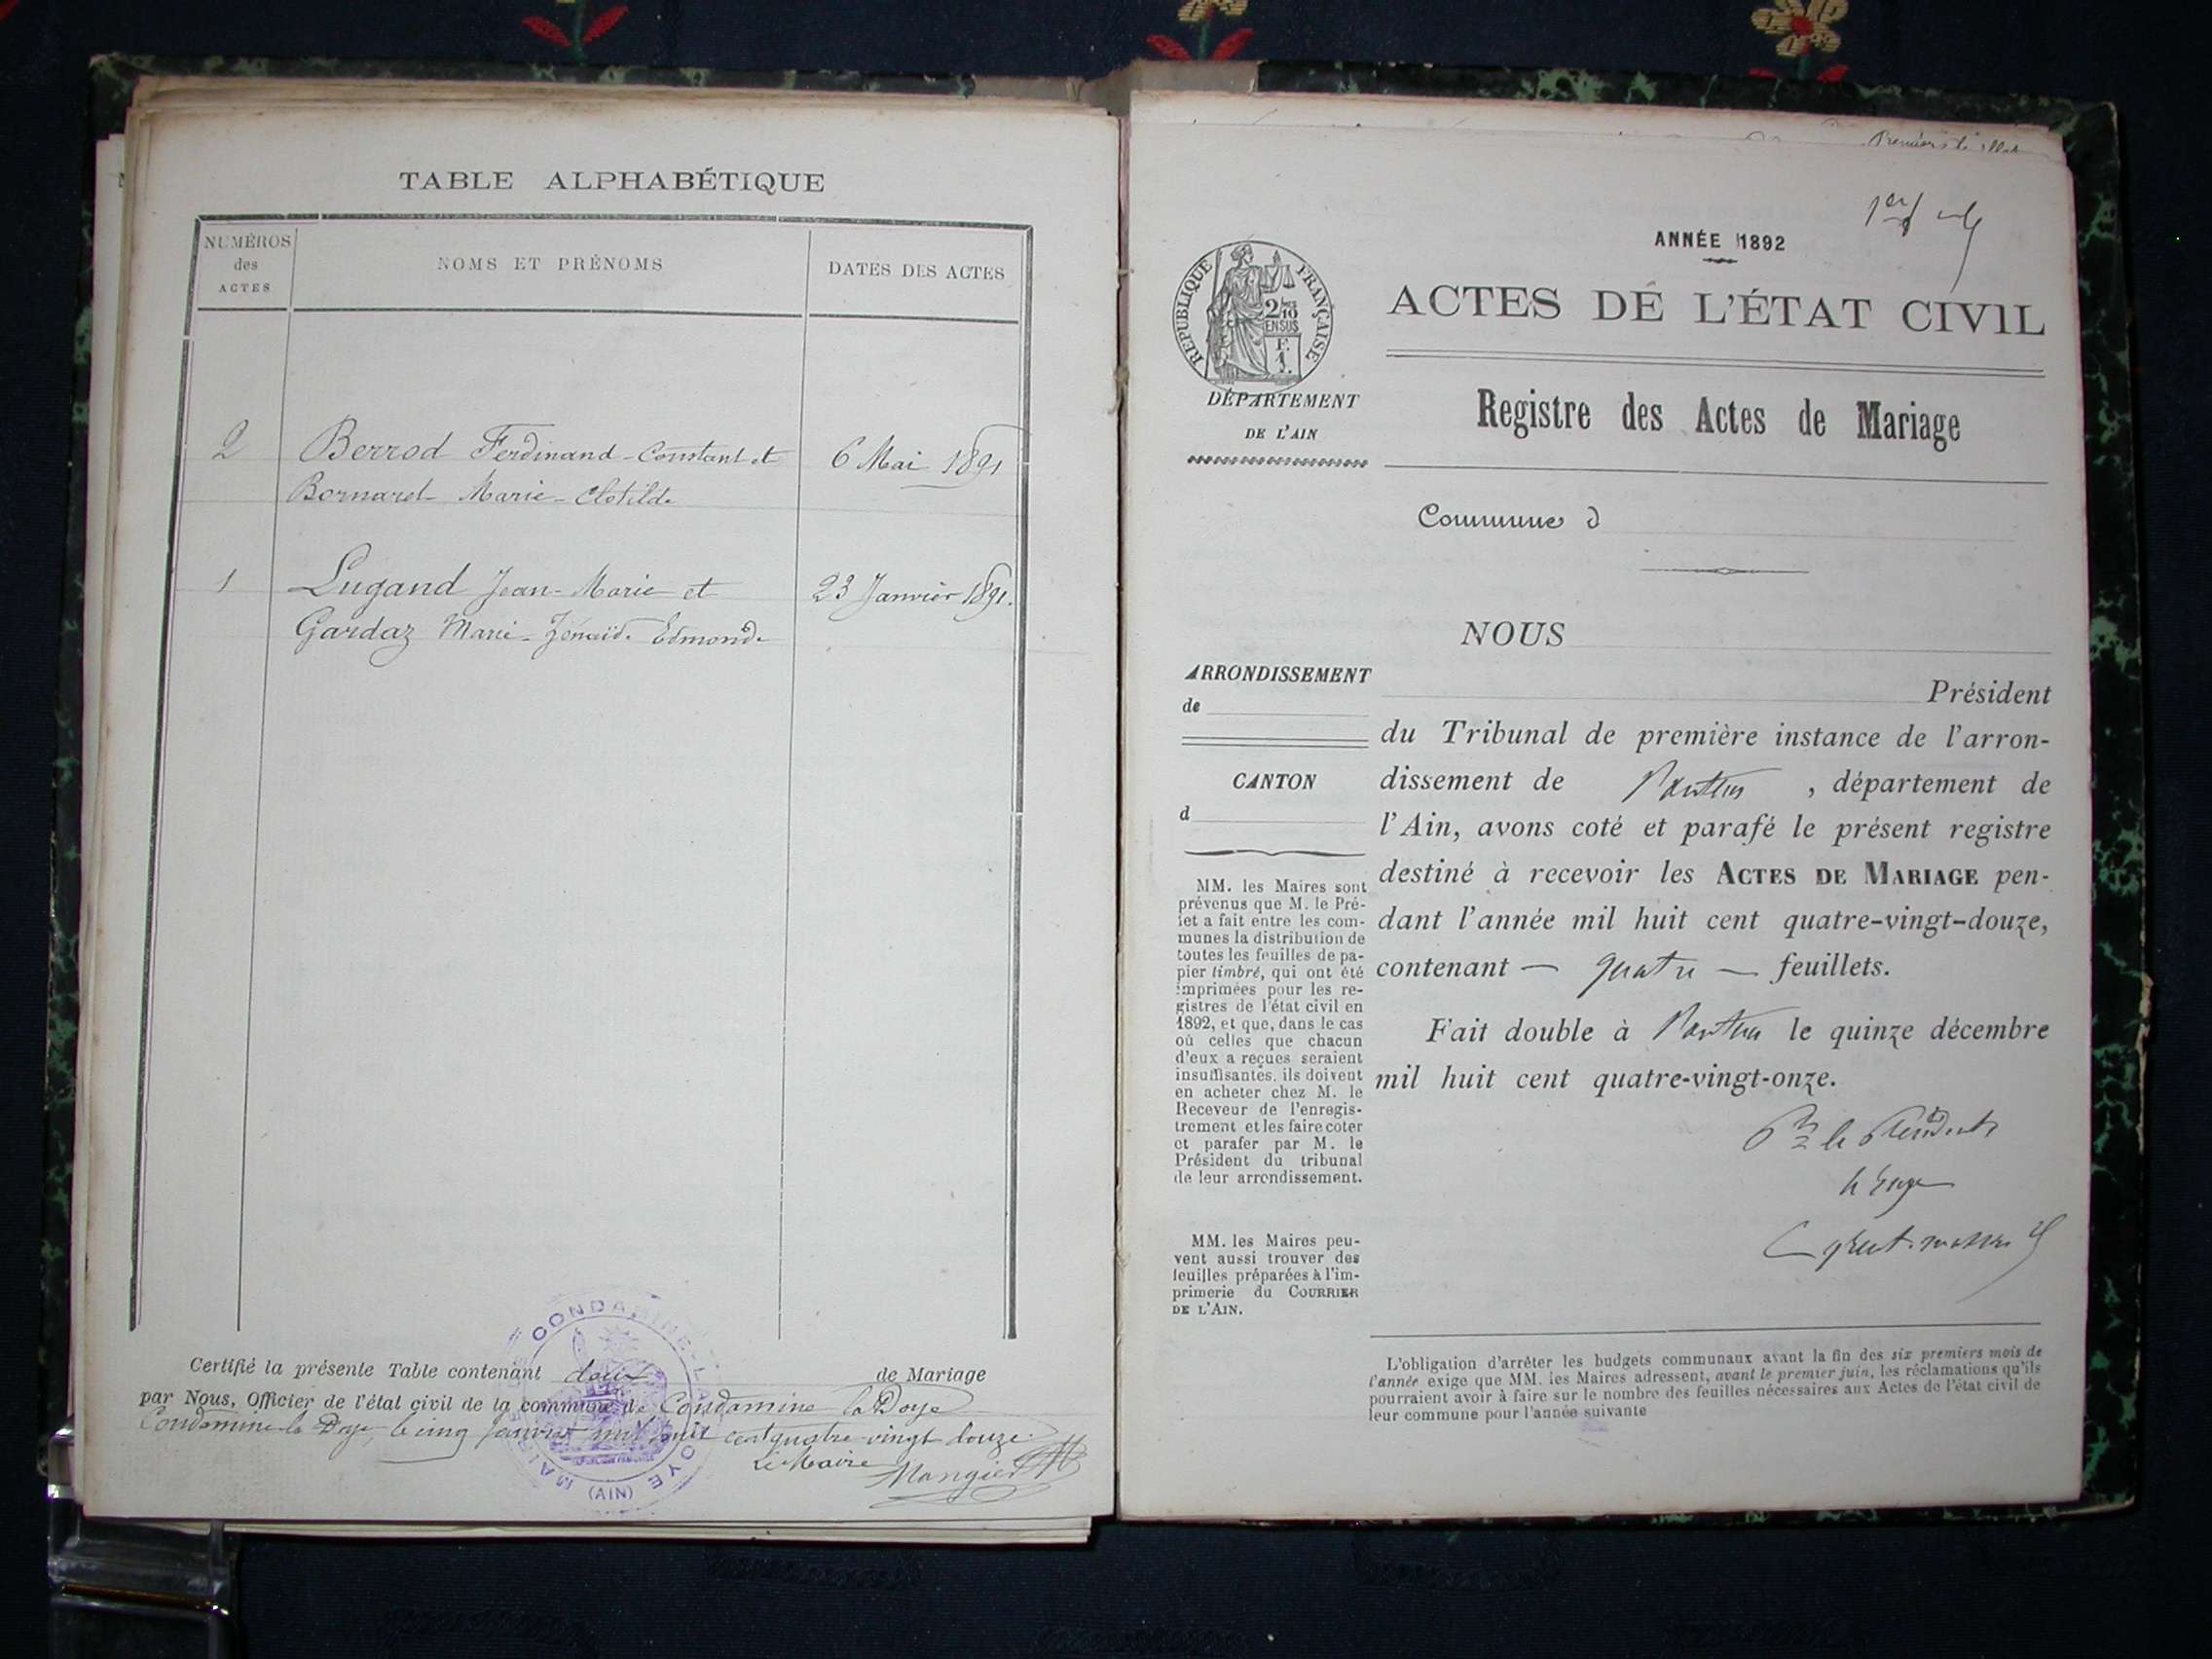 TABLE ALPHABÉTIQUE
NUMÉROS
des
ACTES
NOMS ET PRÉNOMS
DATES DES ACTES
2 Berrod Ferdinand-Constant et 6 Mai 1891
Bornaret Marie-Clotilde
1 Lugand Jean-Marie et 23 Janvier 1891.
Gardaz Marie-Zénaïde Edmonde
Certifié la présente Table contenant deux de Mariage
par Nous, Officier de l'état civil de la commune de Condamine la Doye
Condamine la Doye, le cinq janvier mil huit cent quatre-vingt douze.
Le Maire
Mangier
MAIRIE DE CONDAMINE-LA-DOYE
(AIN)
Premier feuillet
1er
ANNÉE 1892
RÉPUBLIQUE FRANÇAISE
2/10
EN SUS
F.
1.
ACTES DE L'ÉTAT CIVIL
DÉPARTEMENT
DE L'AIN
Registre des Actes de Mariage
Commune d
NOUS
ARRONDISSEMENT
de
CANTON
d
Président
du Tribunal de première instance de l'arron-
dissement de Nantua, département de
l'Ain, avons coté et parafé le présent registre
destiné à recevoir les ACTES DE MARIAGE pen-
dant l'année mil huit cent quatre-vingt-douze,
contenant — quatre — feuillets.
Fait double à Nantua le quinze décembre
mil huit cent quatre-vingt-onze.
Pr le Président
le Juge
MM. les Maires sont
prévenus que M. le Pré-
fet a fait entre les com-
munes la distribution de
toutes les feuilles de pa-
pier timbré, qui ont été
imprimées pour les re-
gistres de l'état civil en
1892, et que, dans le cas
où celles que chacun
d'eux a reçues seraient
insuffisantes, ils doivent
en acheter chez M. le
Receveur de l'enregis-
trement et les faire coter
et parafer par M. le
Président du tribunal
de leur arrondissement.
MM. les Maires peu-
vent aussi trouver des
feuilles préparées à l'im-
primerie du COURRIER
DE L'AIN.
L'obligation d'arrêter les budgets communaux avant la fin des six premiers mois de
l'année exige que MM. les Maires adressent, avant le premier juin, les réclamations qu'ils
pourraient avoir à faire sur le nombre des feuilles nécessaires aux Actes de l'état civil de
leur commune pour l'année suivante